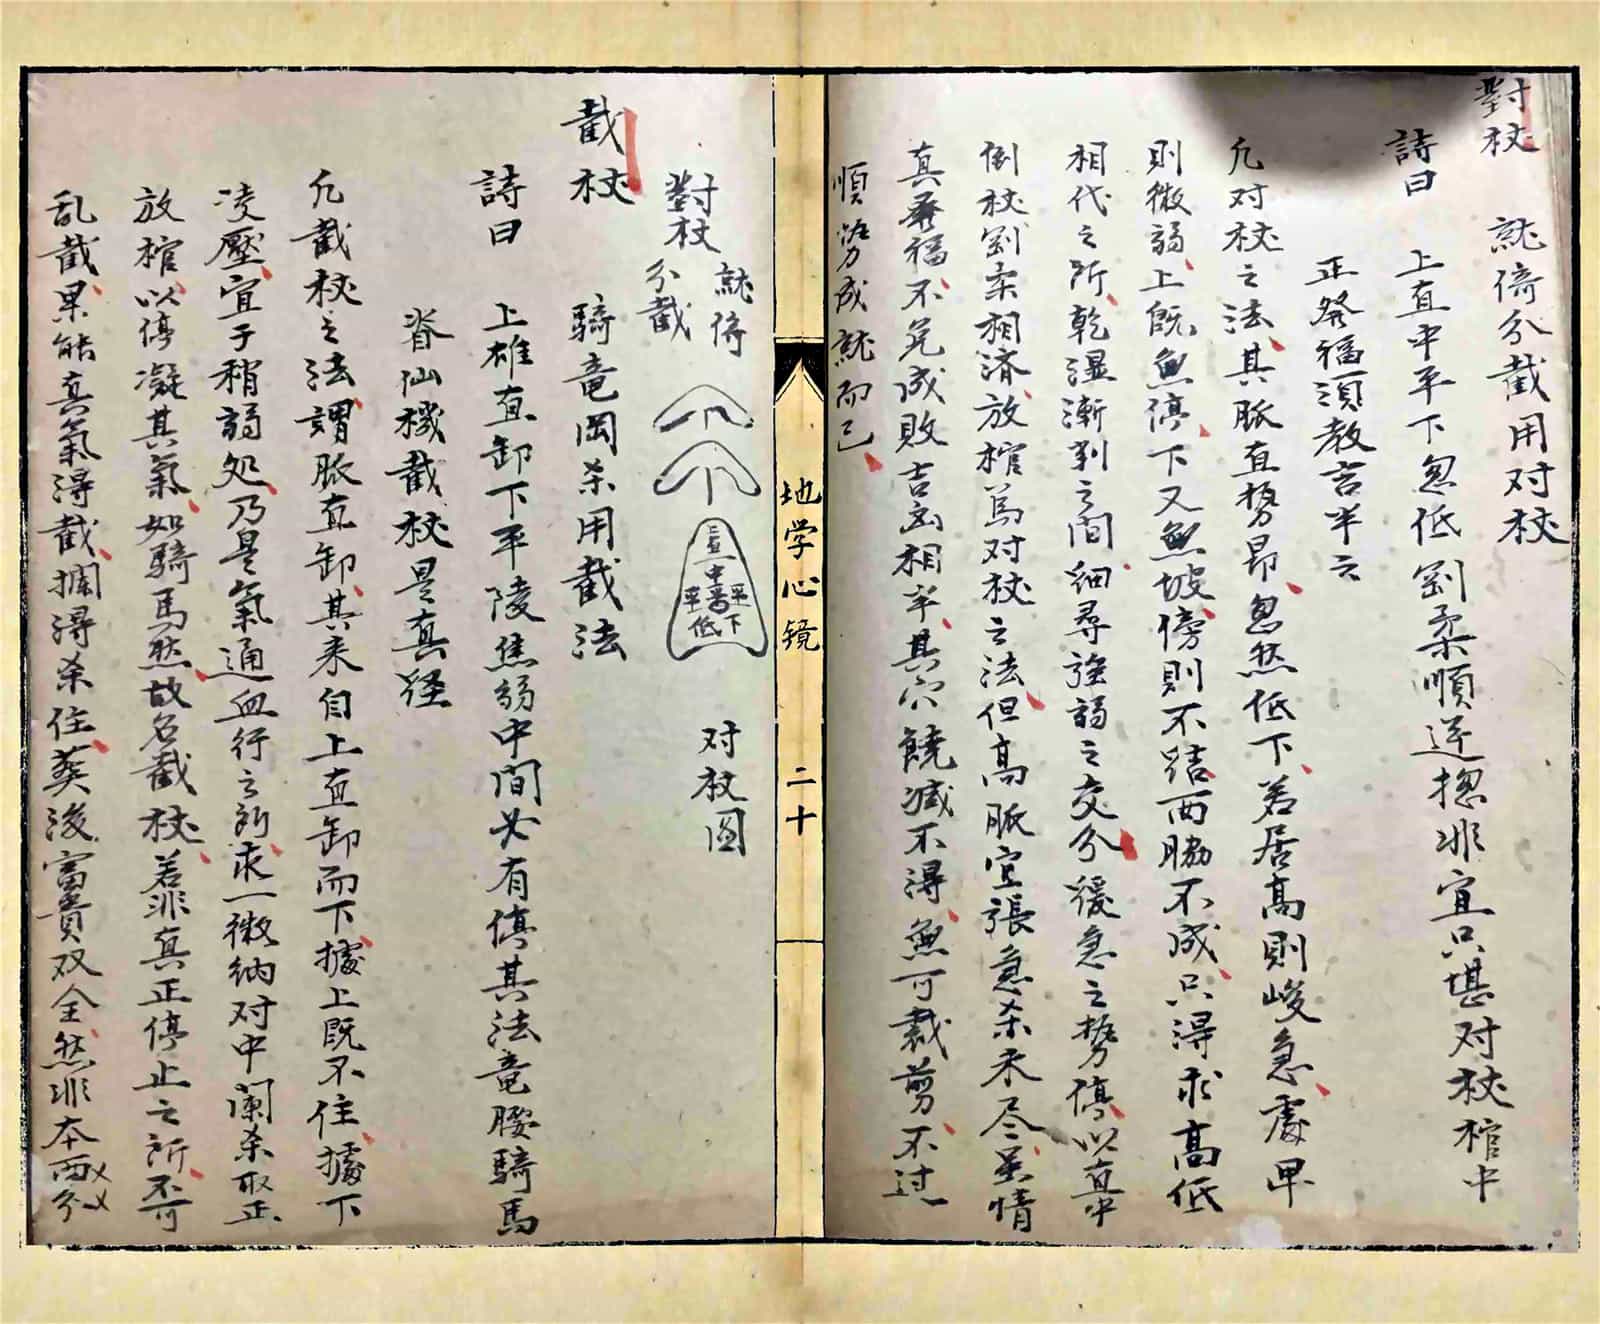 對杖　就倚分截用对杖
詩曰　上直中平下忽低劉柔順逆揔非宜只堪对杖棺中
正發福須教吉半云
凢对杖之法其脈直势昂忽然低下若居高則峻急處卑
則微弱上既無停下又無坡傍則不踮两脇不成只得求高低
相代之所乾湿漸到之间细尋強弱之交分緩急之势停以直中
倒杖剛柔相济放棺为对杖之法但高脈宜張急杀未尽吴情
真發福不免成敗吉凶相半其穴饒减不得無可裁剪不过
順势成就而已
地学心镜　二十
對杖　就倚　分截　对杖圖
上直　中平　下低
截杖　騎竜岡杀用截法
詩曰　上雄直卸下平陵焦弱中间必有停其法竜腰騎馬
脊仙機截杖是真経
凢截杖之法謂脈直卸其来自上直卸而下據上既不住據下
凌壓宜于稍弱处乃是氣通血行之所求一微纳对中阑杀取正
放棺以停凝其氣如騎馬然故名截杖若非真正停止之所不可
乱截果能真氣得截攔得杀住葬後富貴双全然非本